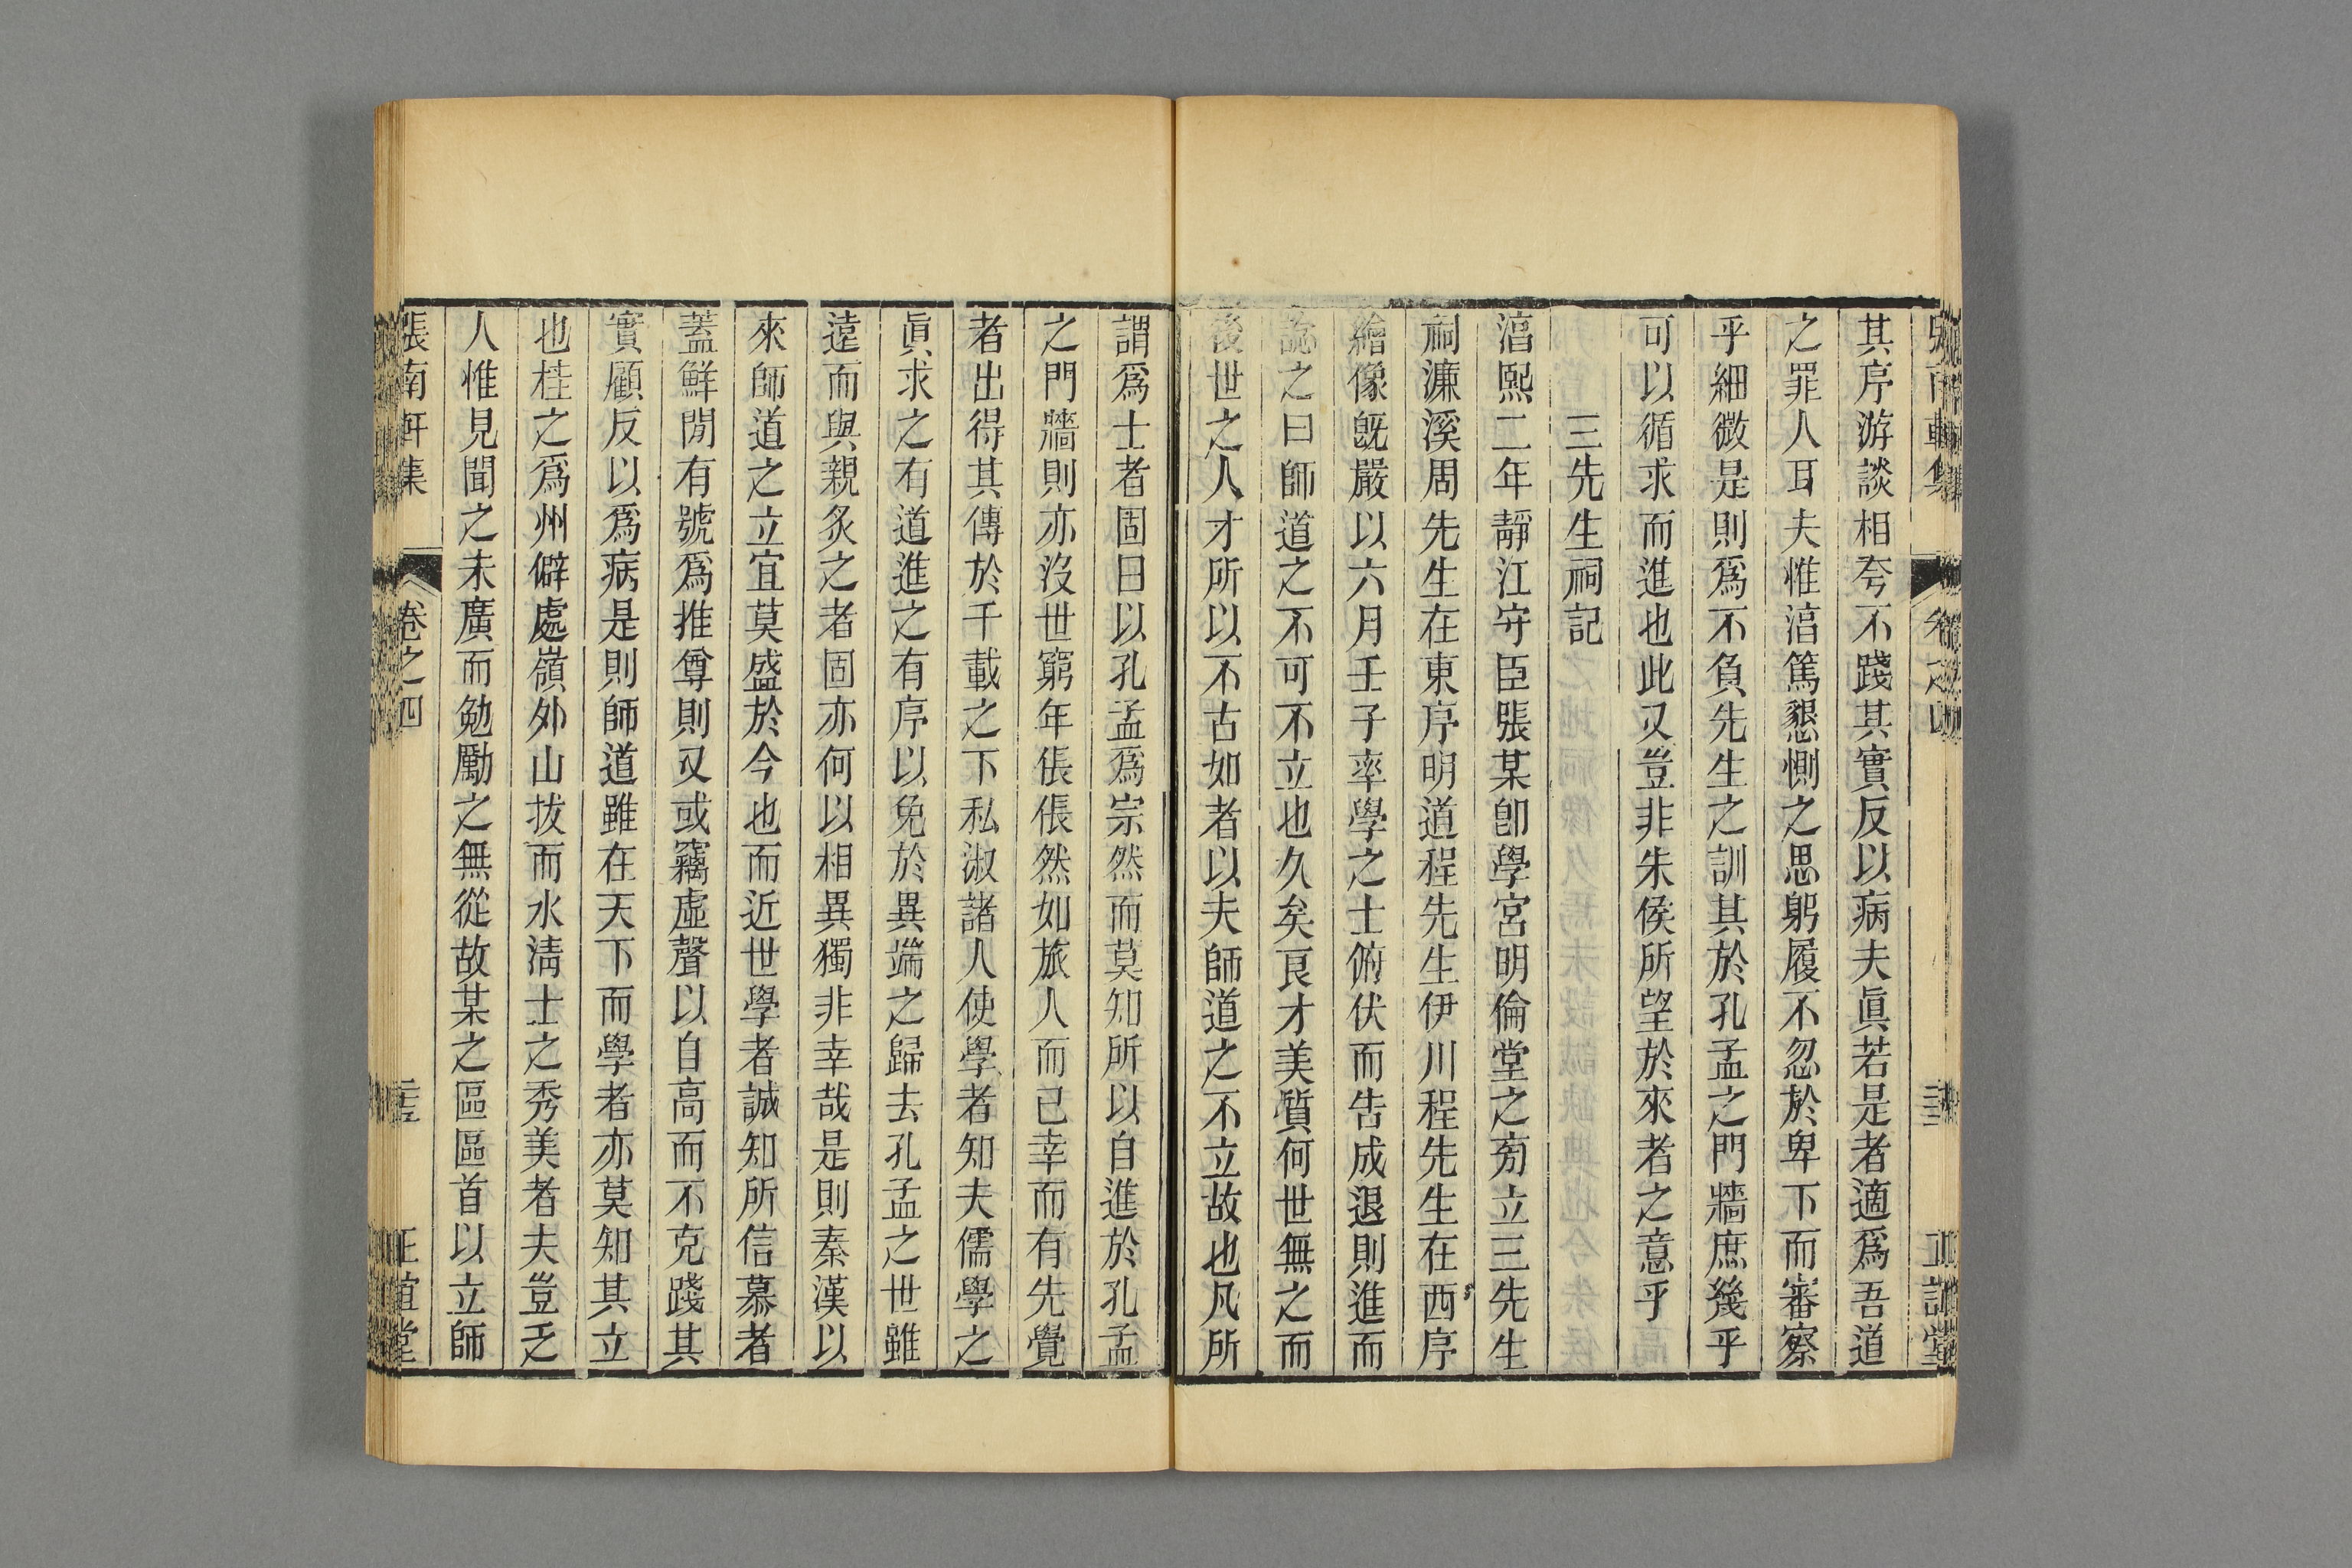 其序游談相夸不踐其實反以病夫眞若是者適爲吾道
之罪人耳夫惟淳篤懇惻之思躬履不忽於卑下而審察
乎細微是則爲不負先生之訓其於孔孟之門牆庶幾乎
可以循求而進也此又豈非朱侯所望於來者之意乎
三先生祠記
淳熙二年靜江守臣張某卽學宮明倫堂之㫄立三先生
祠濂溪周先生在東序明道程先生伊川程先生在西序
繪像旣嚴以六月壬子率學之士俯伏而告成退則進而
諗之曰師道之不可不立也久矣良才美質何世無之而
後世之人才所以不古如者以夫師道之不立故也凡所
謂爲士者固曰以孔孟爲宗然而莫知所以自進於孔孟
之門牆則亦沒世窮年倀倀然如旅人而已幸而有先覺
者出得其傳於千載之下私淑諸人使學者知夫儒學之
眞求之有道進之有序以免於異端之歸去孔孟之世雖
遠而與親炙之者固亦何以相異獨非幸哉是則秦漢以
來師道之立宜莫盛於今也而近世學者誠知所信慕者
蓋鮮閒有號爲推尊則又或竊虛聲以自高而不克踐其
實顧反以爲病是則師道雖在天下而學者亦莫知其立
也桂之爲州僻處嶺外山拔而水淸士之秀美者夫豈乏
人惟見聞之未廣而勉勵之無從故某之區區首以立師
張南軒集
卷之四
正誼堂